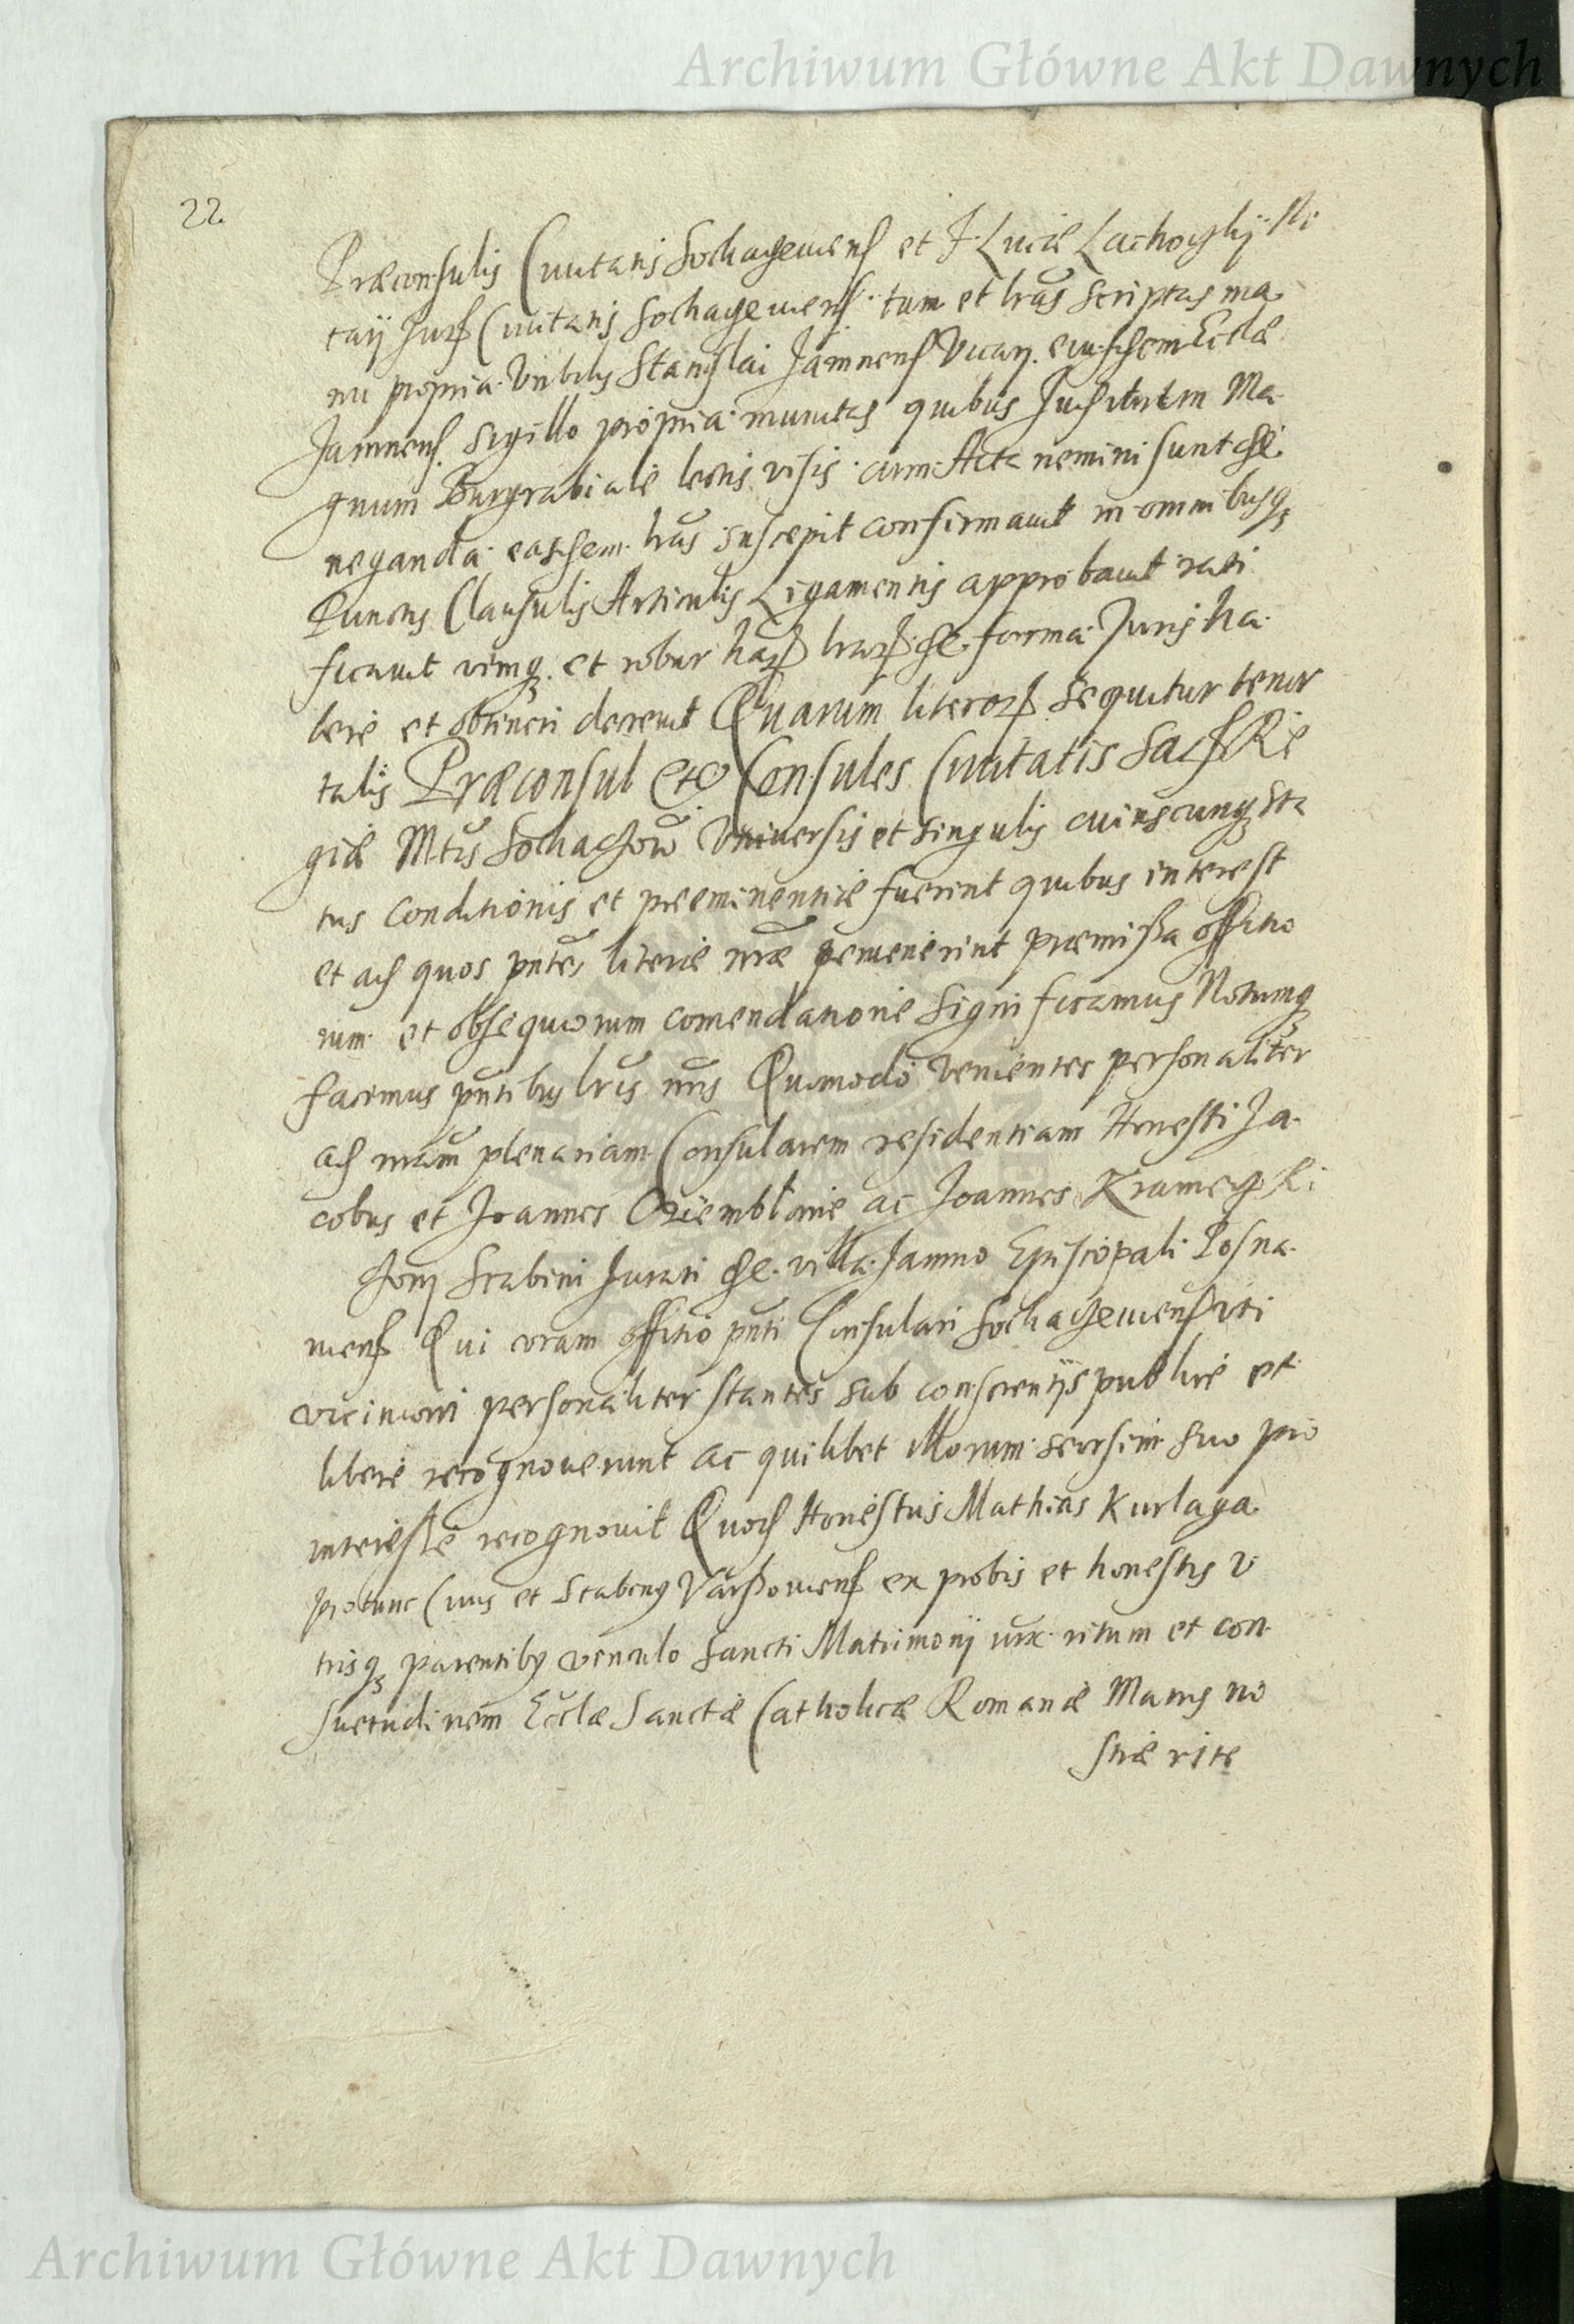 Archiwum Główne Akt Dawnych
22.
Præconsulis Civitatis Sochaczeviens et F. Lucæ No
tarij Jur Civitatis Sochacieviens. tum et lras̄ scriptas ma
nu propria Vnblis Stanislai Jamnens Vicarj eiusdem Ecclæ
Jamnens. sigillo propria munitas quibus Judicium Ma
gnum Burgrabiale lectis visis cum Acta nemini sunt de
neganda easdem lras̄ suscepit confirmavit in omnibusq
Punctis Clausulis Articulis Ligamentis approbavit rati
ficavit vimq et robur har lrar de forma Juris ha
bere et obtineri decrevit Quarum literar sequitur tenor
talis Præconsul et Consules Civitatis Sac Re
giæ Mtis Sochaczow Vniversis et singulis cuiuscunq sta
tus conditionis et preeminentiæ fuerint quibus interest
et ad quos pntes literæ nræ pervenerint præmissa offitio
rum et obsequiorum comendatione significamus Notumq
facimus pntibus lris nris Quomodo venientes personaliter
ad nram plenariam Consularem residentiam Honesti Ja
cobus et Joannes ac Joannes
Scabini Jurati de villa Jamno Episcopali Posna
niens Qui coram offitio pnti Consulari Sochacieviens uti
viciniori personaliter stantes sub conscientijs publice et
libere recognoverunt ac quilibet illorum seorsim suo pro
interesse recognovit Quod Honestus Mathias Kurlaga
protunc Civis et Scabinus Varssoviens ex probis et honestis v
trisq parentibus vinculo Sancti Matrimonij iux ritum et con
suetudinem Ecclæ Sanctæ Catholicæ Romanæ Matris no
stræ rite
Archiwum Główne Akt Dawnych